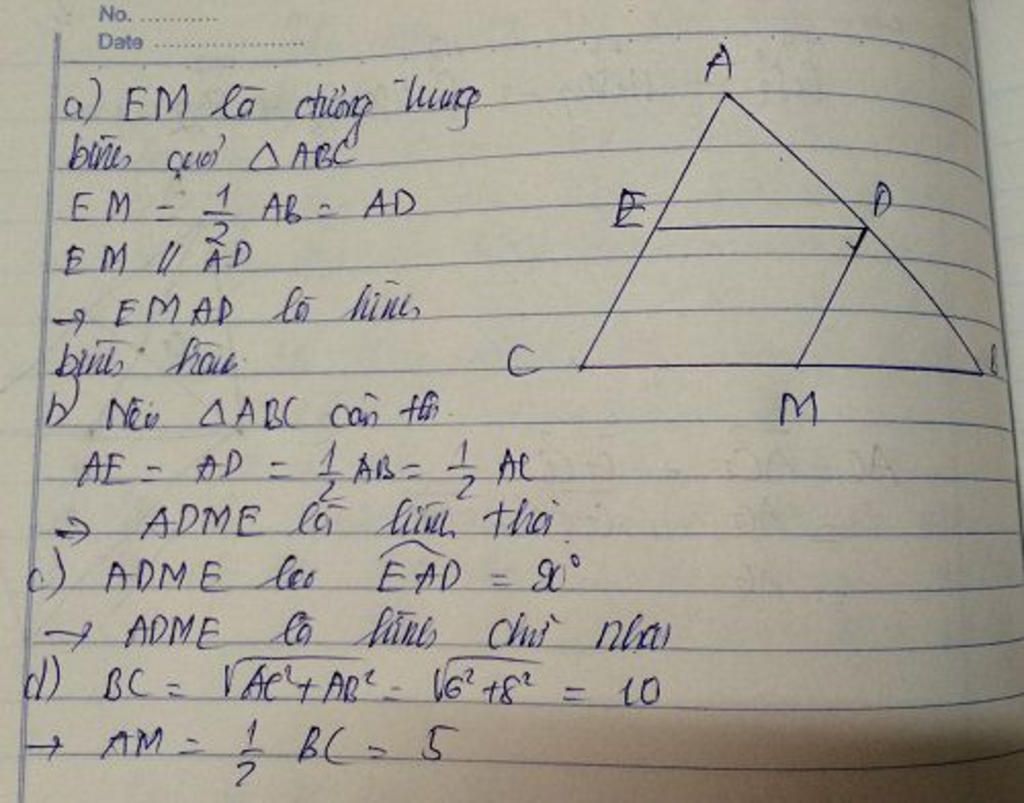 No. ............
Date .......................
a) EM là đường trung
bình của △ABC
EM = 1/2 AB = AD
EM // AD
→ EMAD là hình
bình hành
b) Nếu △ABC cân thì
AE = AD = 1/2 AB = 1/2 AC
⇒ ADME là hình thoi
c) ADME có EAD = 90°
→ ADME là hình chữ nhật
d) BC = √AC²+AB² = √6²+8² = 10
→ AM = 1/2 BC = 5
A
E
D
C
M